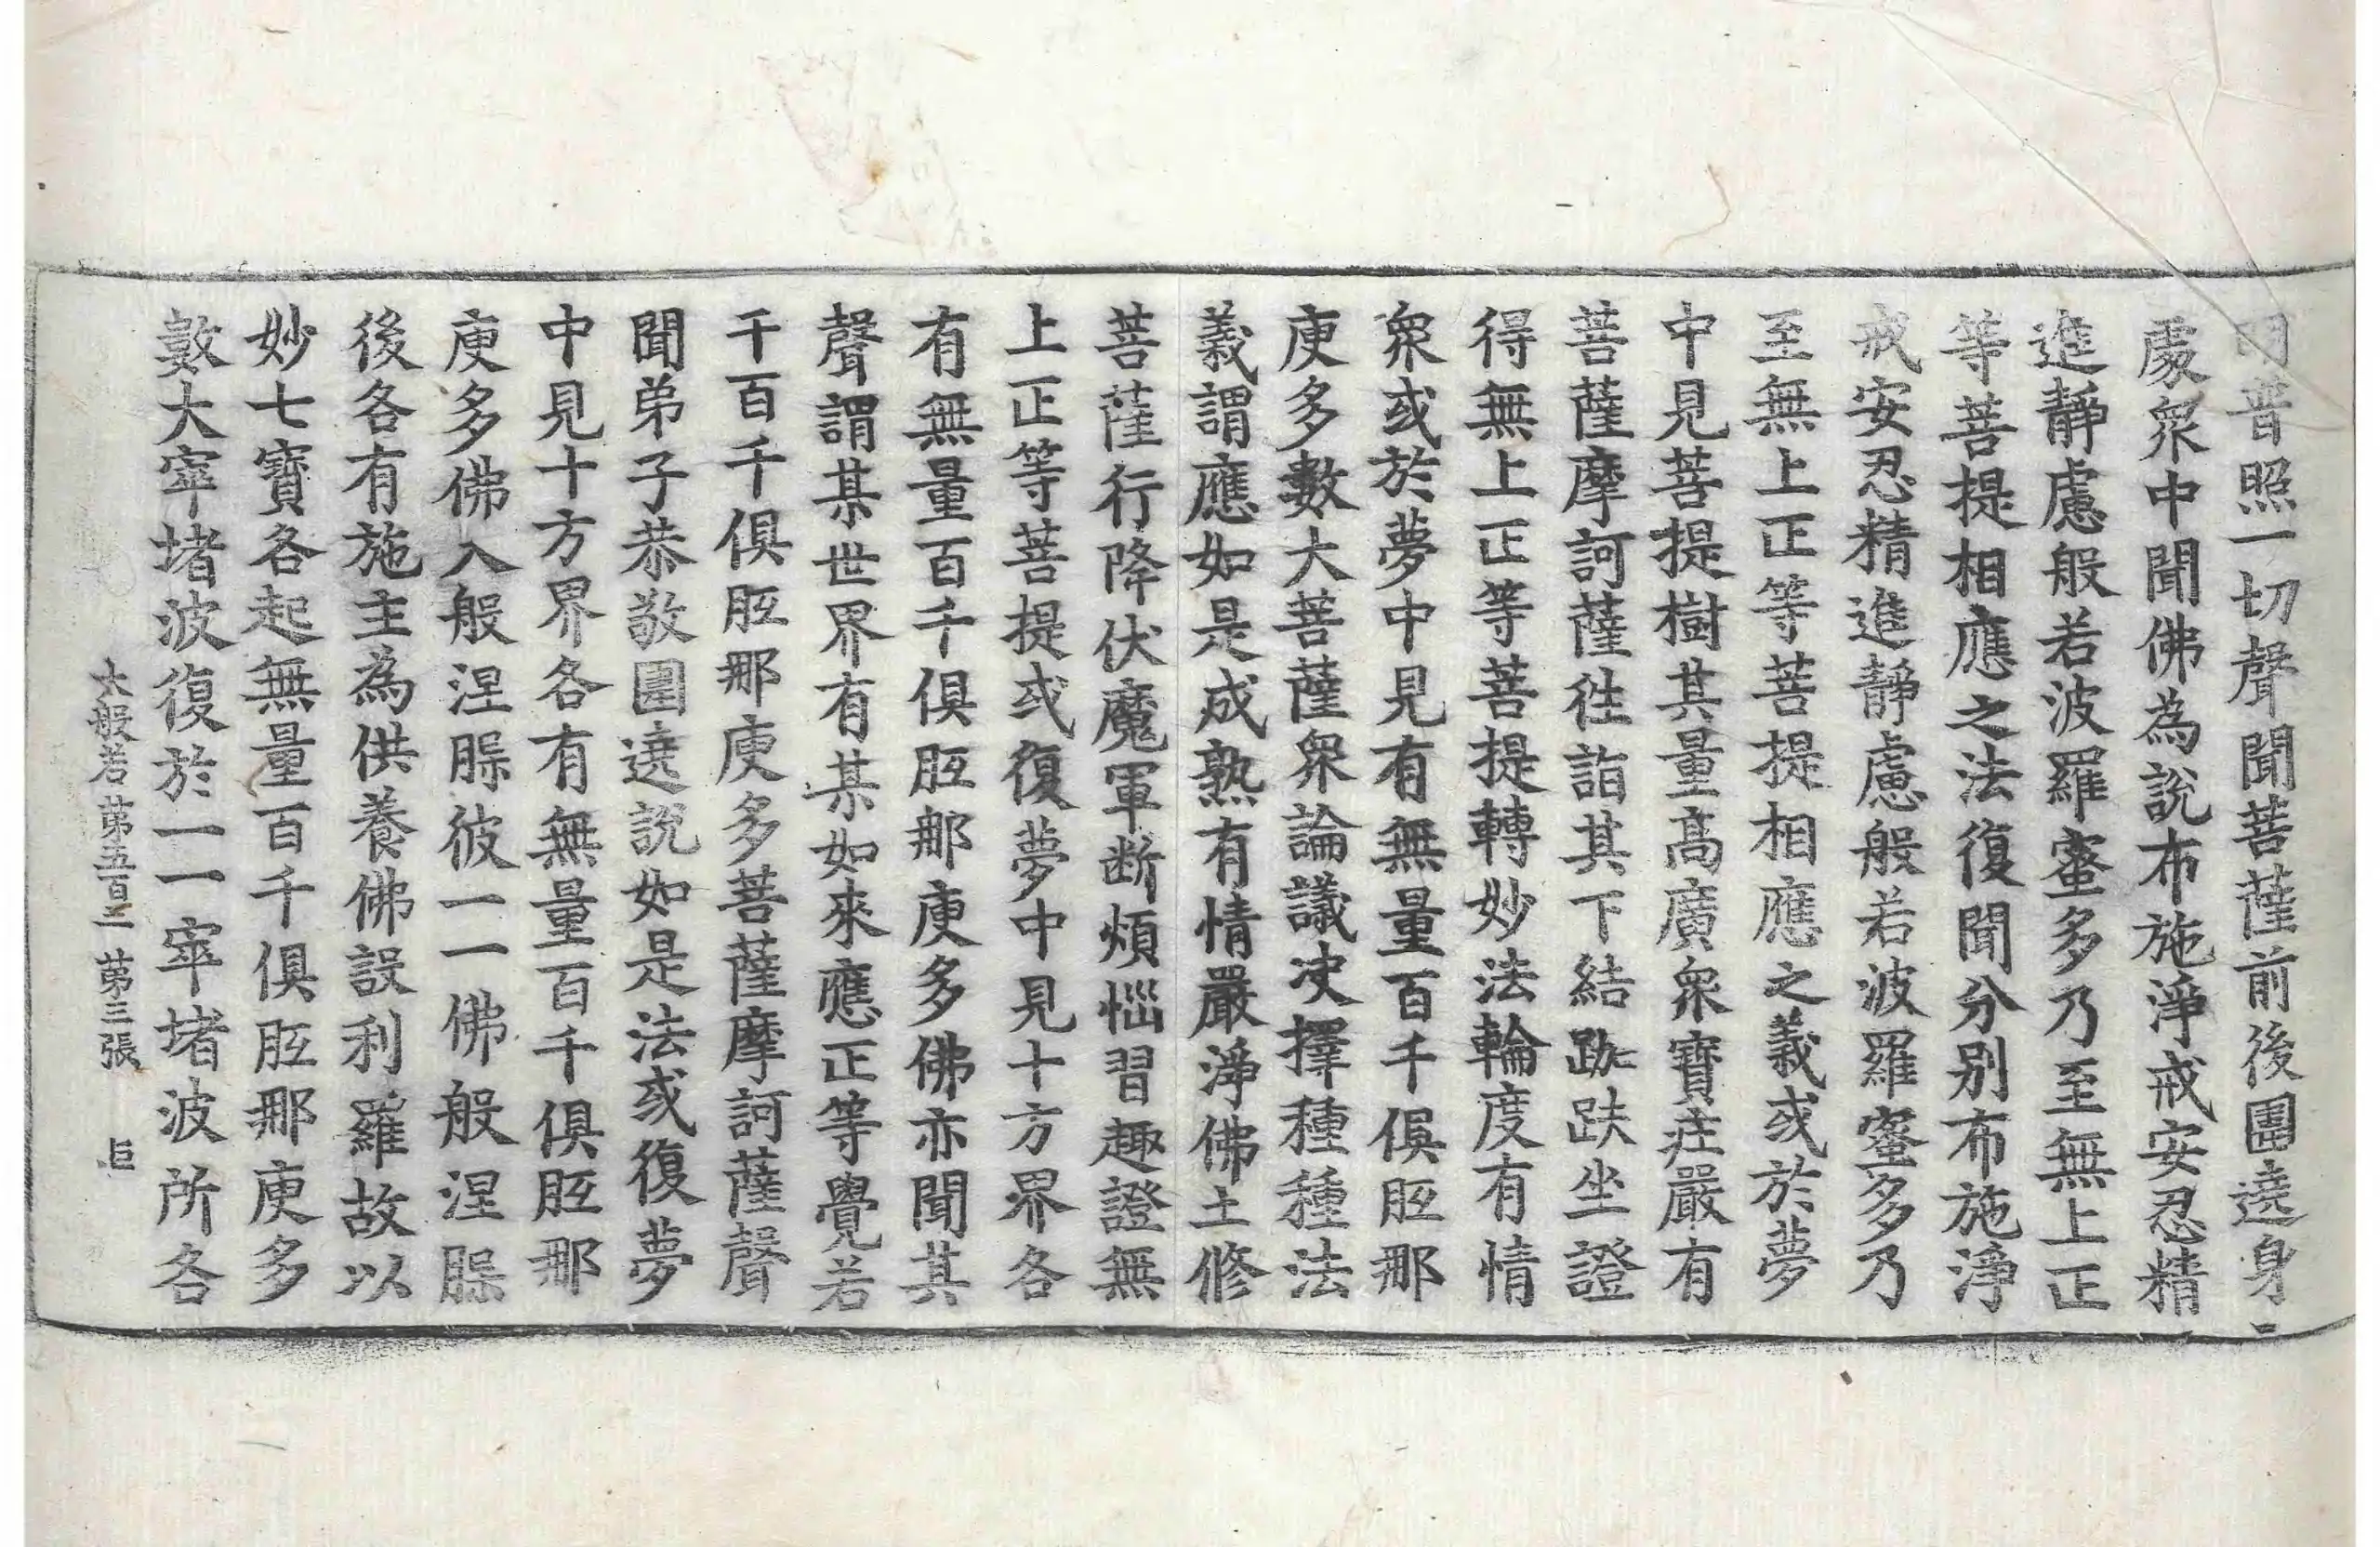 周普照一切聲聞菩薩前後圍遶身
處衆中聞佛為說布施淨戒安忍精
進靜慮般若波羅蜜多乃至無上正
等菩提相應之法復聞分別布施淨
戒安忍精進靜慮般若波羅蜜多乃
至無上正等菩提相應之義或於夢
中見菩提樹其量高廣衆寶莊嚴有
菩薩摩訶薩往詣其下結跏趺坐證
得無上正等菩提轉妙法輪度有情
衆或於夢中見有無量百千俱胝那
庾多數大菩薩衆論議决擇種種法
義謂應如是成熟有情嚴淨佛土修
菩薩行降伏魔軍断煩惱習趣證無
上正等菩提或復夢中見十方界各
有無量百千俱胝那庾多佛亦聞其
聲謂某世界有某如來應正等覺若
千百千俱胝那庾多菩薩摩訶薩聲
聞弟子恭敬圍遶說如是法或復夢
中見十方界各有無量百千俱胝那
庾多佛入般涅槃彼一一佛般涅槃
後各有施主為供養佛設利羅故以
妙七寶各起無量百千俱胝那庾多
數大窣堵波復於一一窣堵波所各
大般若 苐五百二 苐三張 巨